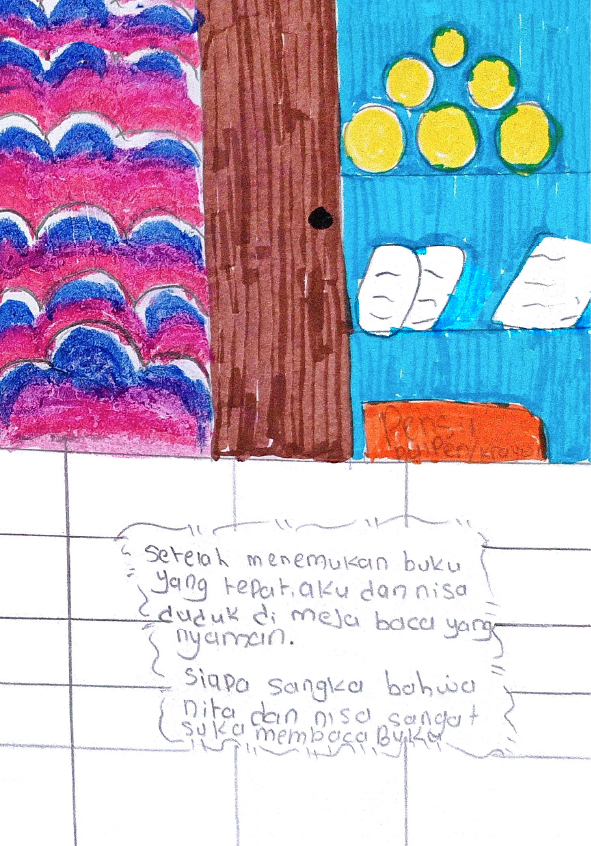 Pensil
Setelah menemukan buku
yang tepat, aku dan nisa
duduk di meja baca yang
nyaman.
Siapa sangka bahwa
nita dan nisa sangat
suka membaca Buku